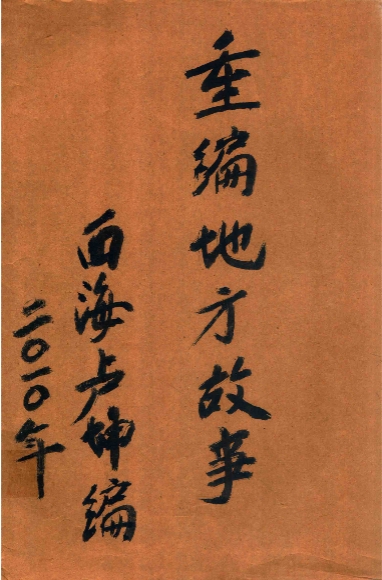 重编地方故事
西海卢坤编
二〇一〇年